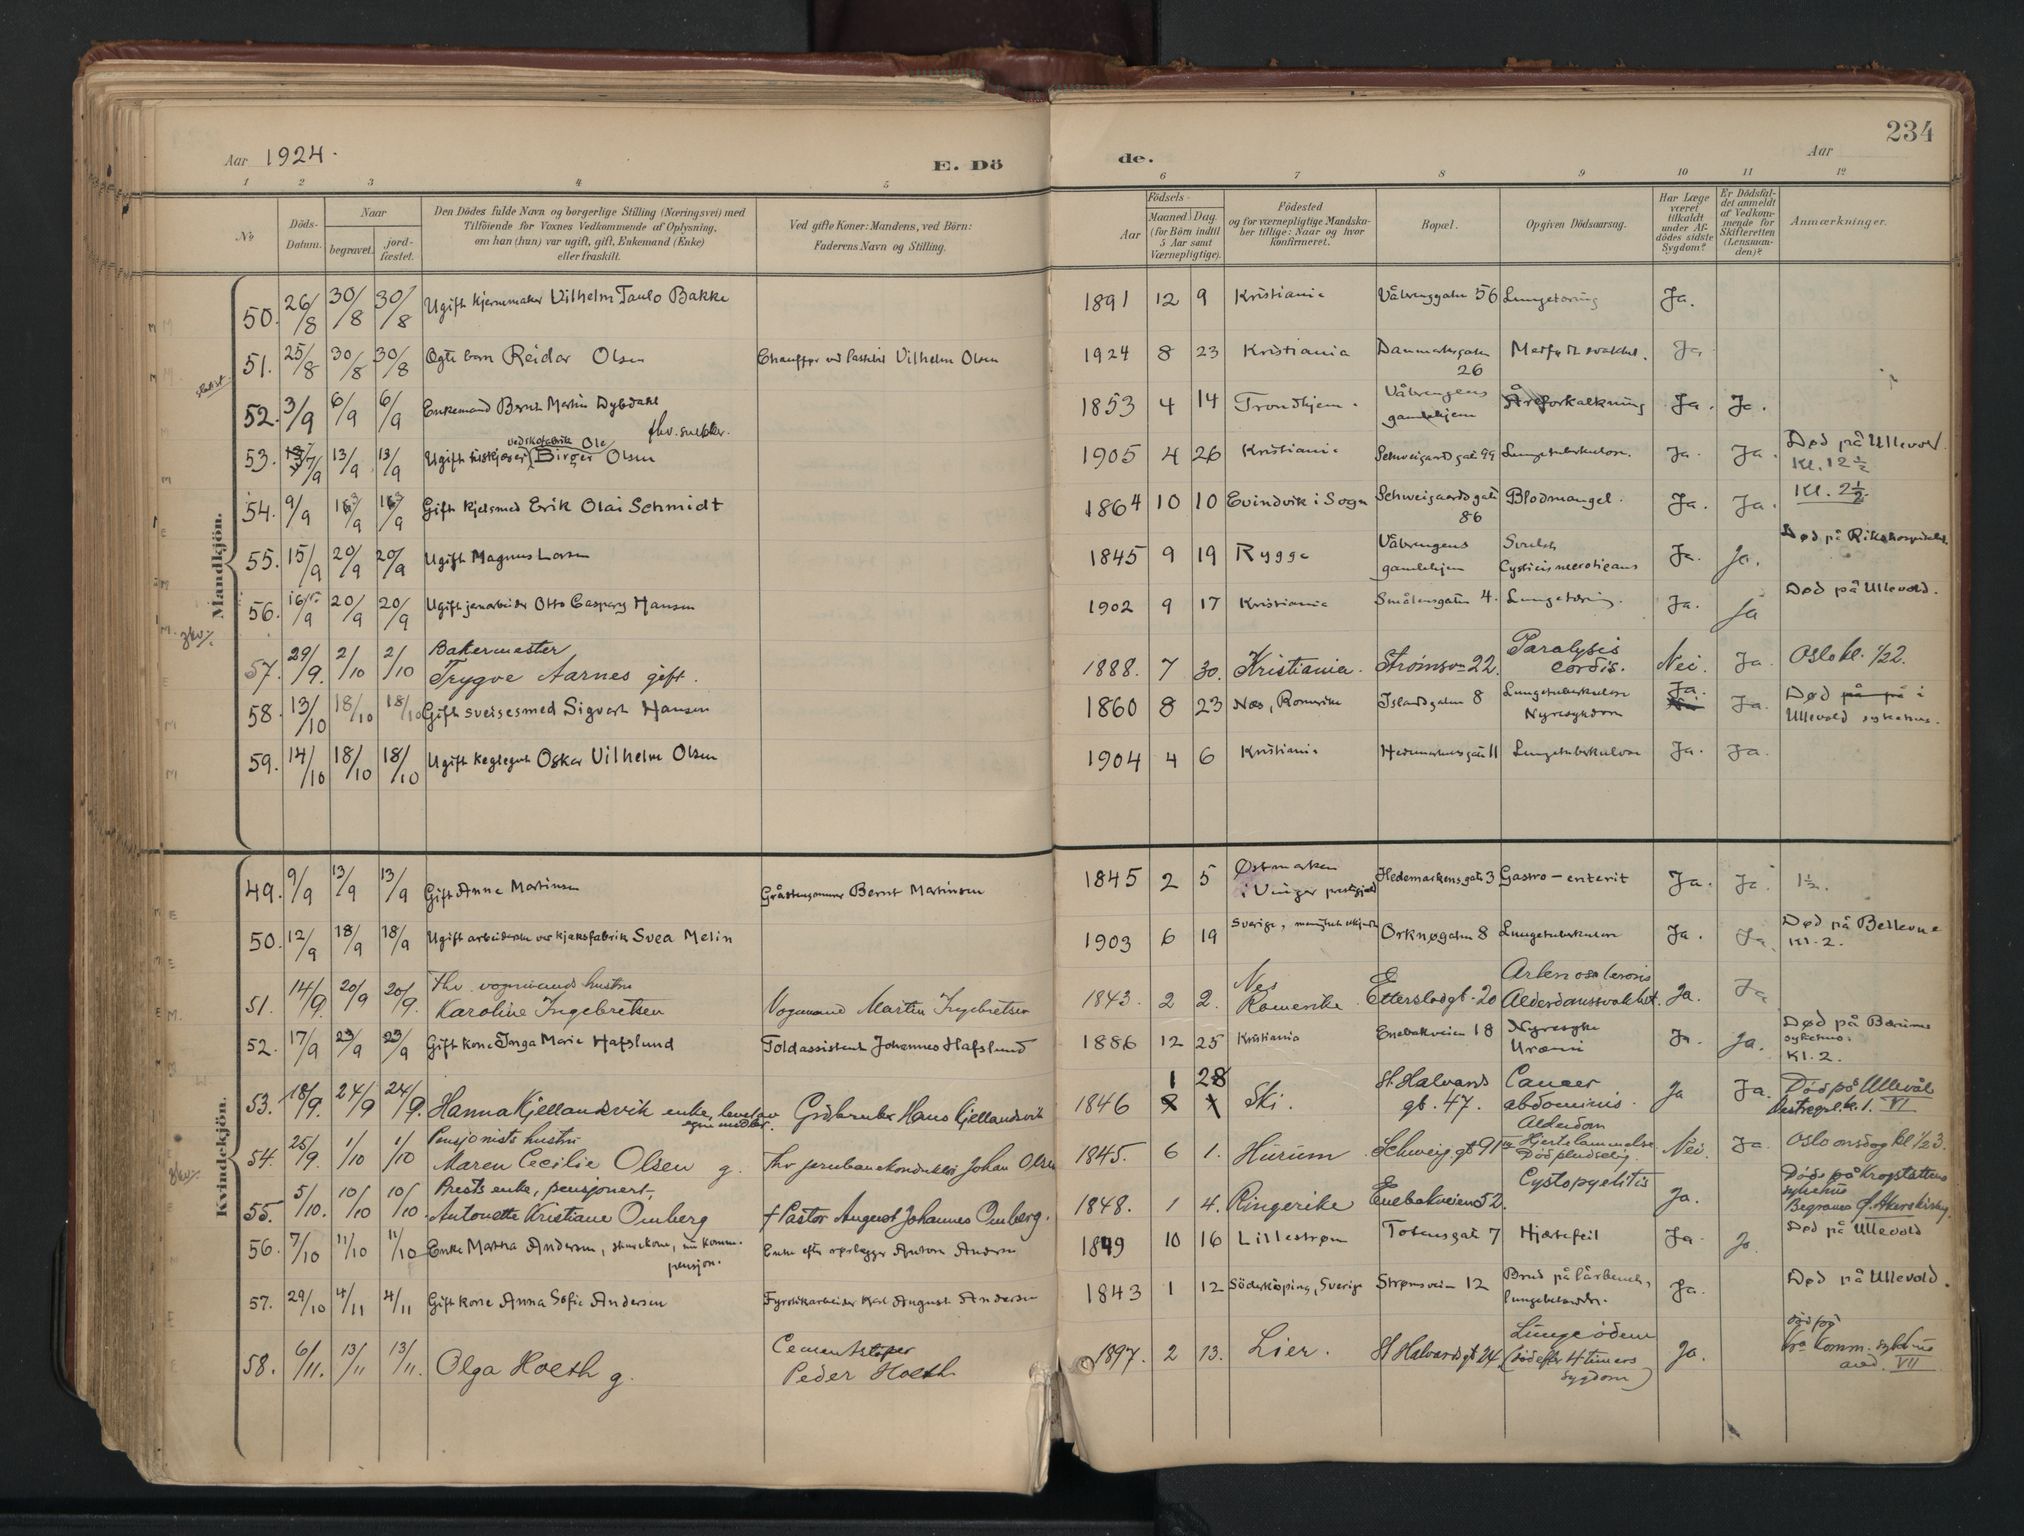 Aar 1924.
E. Dö
de.
Aar
234
1 2 3 4 5 6 7 8 9 10 11 12
No
Döds-Datum.
Naar
begravet.
jord-fæstet.
Den Dödes fulde Navn og borgerlige Stilling (Næringsvei) med
Tilföiende for Voxnes Vedkommende af Oplysning,
om han (hun) var ugift, gift, Enkemand (Enke)
eller fraskilt.
Ved gifte Koner: Mandens, ved Börn:
Faderens Navn og Stilling.
Födsels-
Aar
Maaned Dag.
(for Börn indtil
5 Aar samt
Værnepligtige).
Födested
og for værnepligtige Mandska-
ber tillige: Naar og hvor
konfirmeret.
Bopæl.
Opgiven Dödsaarsag.
Har Læge
været
tilkaldt
under Af-
dödes sidste
Sygdom?
Er Dödsfal-
det anmeldt
af Vedkom-
mende for
Skifteretten
(Lensman-
den)?
Anmærkninger.
Mandkjön.
50. 26/8 30/8 30/8 Ugift kjernemaker Vilhelm Paulo Bakke 1891 12 9 Kristiania Vålerenggaten 56 Lungetæring Ja.
51. 25/8 30/8 30/8 Ægte barn Reidar Olsen Chauffør ved Vilhelm Olsen 1924 8 23 Kristiania Danmarksgaten 26 Medfødt svakhet. Ja
52. 3/9 6/9 6/9 Enkemand Bernt Martin Dybdahl fhv. snekker. 1853 4 14 Trondhjem. Vålerengens gamlehjem Åreforkalkning Ja. Ja.
53. 7/9 13/9 13/9 Ugift ved skofabrik Ole Birger Olsen 1905 4 26 Kristiania Schweigaardsgate 99 Lungetuberkulose. Ja. Ja. Død på Ullevol Kl. 12 1/2
54. 9/9 13/9 13/9 Gift kjelsmed Erik Olai Schmidt 1864 10 10 Evindvik i Sogn Schweigaardsgate 86 Blodmangel. Ja. Ja. Kl. 2 1/2.
55. 15/9 20/9 20/9 Ugift Magnus Larsen 1845 9 19 Rygge Vålerengens gamlehjem Cysticis necroticans Ja. Ja. Død på Rikshospitalet
56. 16/9 20/9 20/9 Ugift jernarbeider Otto Casperg Hansen 1902 9 17 Kristiania Smålensgaten 4. Lungetæring. Ja. Ja Død på Ullevold.
57. 29/9. 2/10 2/10 Bakermester
Trygve Aarnes gift. 1888. 7 30. Kristiania. Strömsvn 22. Paralysis cordis. Nei. Ja. Oslo kl. 1/2 2.
58. 13/10 18/10 18/10 Gift sveisesmed Sigvart Hansen 1860 8 23 Næs, Romerike Islandsgaten 8 Lungetuberkulose Nyresykdom Ja. Ja. Død på på i Ullevold sykehus.
59. 14/10 18/10 18/10 Ugift keglegut Oskar Vilhelm Olsen 1904 4 6 Kristiania Hedemarkensgate 11 Lungetuberkulose Ja. Ja.
Kvindekjön.
49. 9/9 13/9 13/9 Gift Anna Martinsen Gråstensgammer Bernt Martinsen 1845 2 5 Østmarken i Vinger prestegjeld Hedemarkensgate 3 Gastro-enterit Ja. Ja. 1 1/2.
50. 12/9 18/9 18/9 Ugift arbeiderske ved kjæksfabrik Svea Melin 1903 6 19 Sverige, Orknøgaten 8 Lungetuberkulose Ja. Ja. Død på Bellevue Kl. 2.
51. 14/9. 20/9 20/9. fhv. vognmands hustru
Karoline Ingebretsen Vognmand Martin Ingebretsen 1843. 2 2. Nes Romerike Etterstadgt. 20 Alderdomssvakhet. Ja. Ja
52. 17/9 23/9 23/9 Gift kone Inga Marie Hafslund Toldassistent Johannes Hafslund 1886 12 25 Kristiania Enebakveien 18 Nyresyke Uræmi Ja. Ja. Død på Bærums sykehus. Kl. 2.
53. 18/9. 24/9 24/9. Hanna Kjellandsvik enke, levet av egne midler. Gårdbruker Hans Kjellandsvik 1846 1 28 Ski. St. Halvards gt. 47. Cancer abdominis. Ja Ja. Död på Ullevål
54. 25/9. 1/10 1/10 Pensjonists hustru
Maren Cecilie Olsen g. fhv. Johan Olsen 1845. 6 1. Hurum. Schweig gt 91 Alderdom Hjertelammelse Död pludselig. Nei. Ja. Oslo onsdag kl 1/2 3.
55. 5/10. 10/10 10/10. Prests enke, pensjonert,
Antonette Kristiane Omberg † Pastor August Johannes Omberg. 1848. 1 4. Ringerike Enebakveien 52. Cystopyelitis Ja. Död på Kropstattens sykehus Begraves f. Akerskirkeg.
56. 7/10 11/10 11/10 Enke Mathea Andersen, , nu komm. pensjon. Enke efter oprlægger Anton Andersen 1849 10 16 Lillestrøm Totensgate 7 Hjertefeil Ja. Ja. Død på Ullevold
57. 29/10 4/11 4/11 Gift kone Anna Sofie Andersen Fyrstikarbeider Karl August Andersen 1843 1 12 Söderköping, Sverige Strømsveien 12 Brud på lårbenet, lungebetændelse. Ja. Død på Ullevold.
58. 6/11. 13/11 13/11. Olga Holth g. Cementstøper
Peder Holth 1897. 2 13. Lier. St Halvardsgt 24. Lungeödem (död efter 4 timers sygdom) Ja. död på Kra Komm. sykehus avd. VII